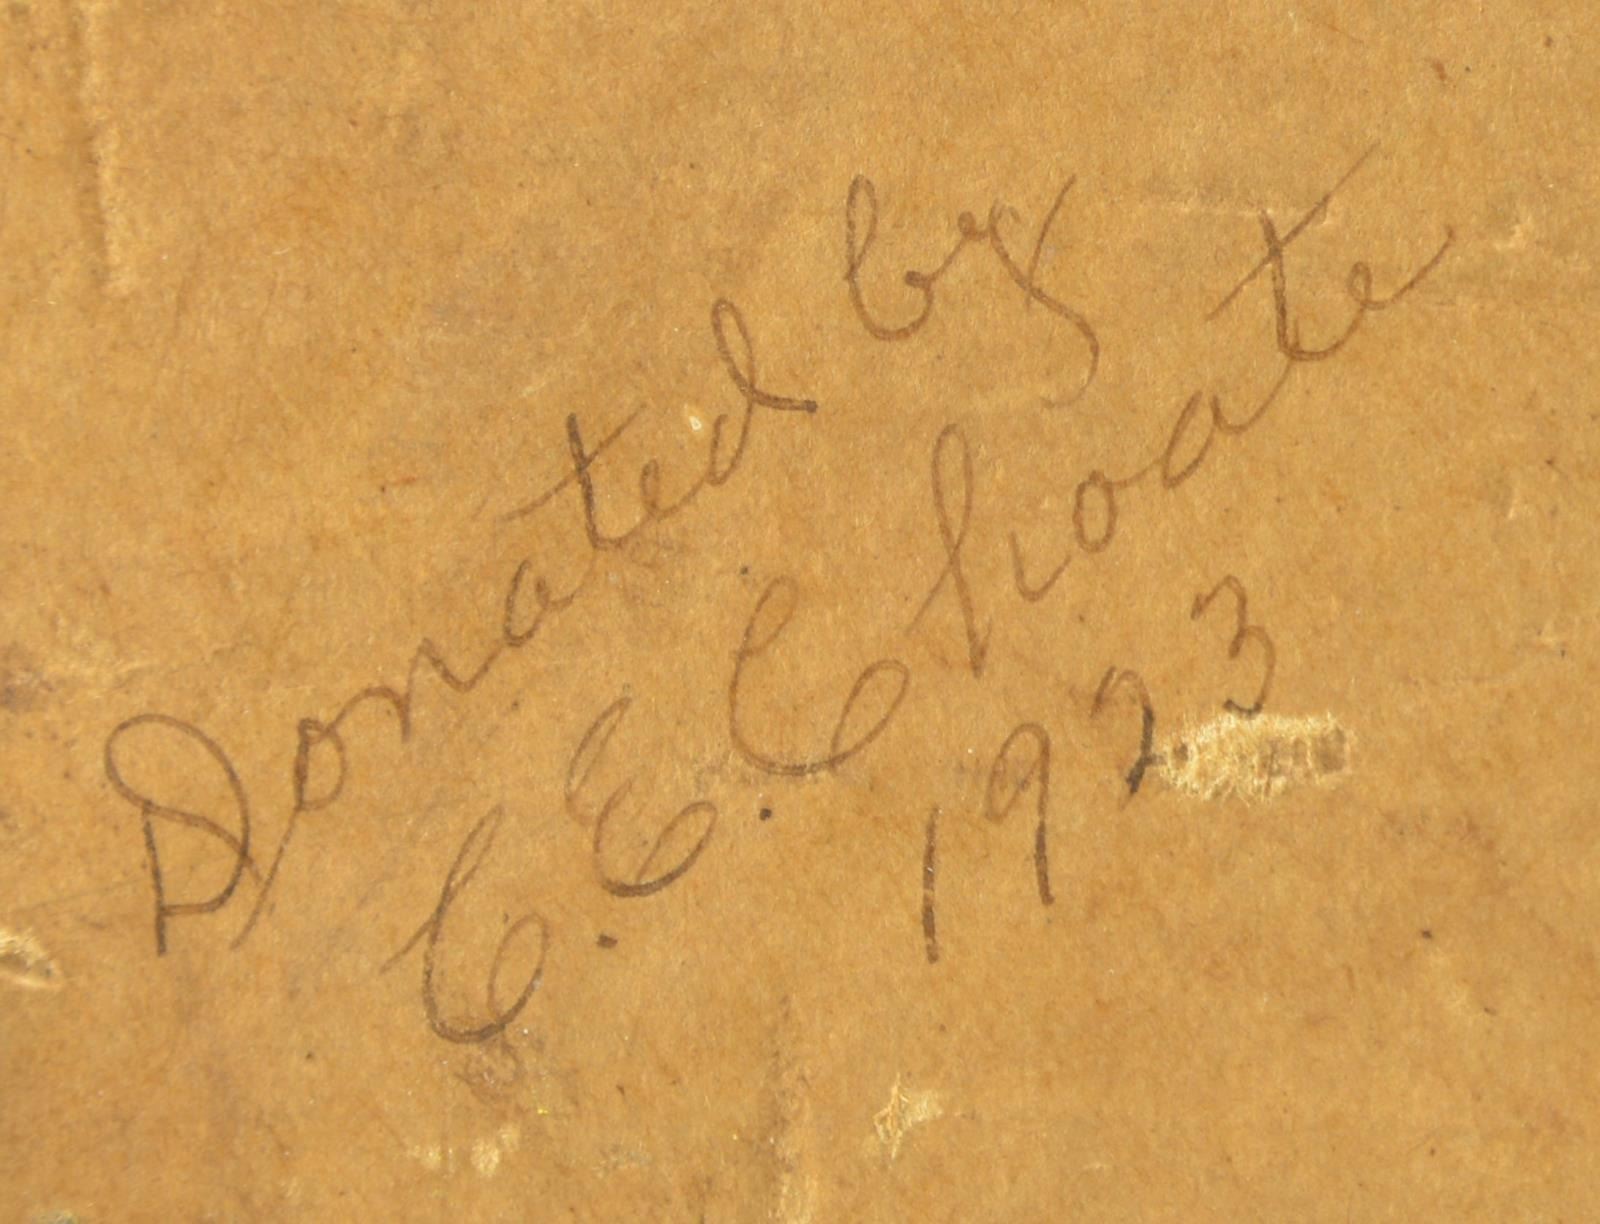 Donated by
C. E. Choate
1923